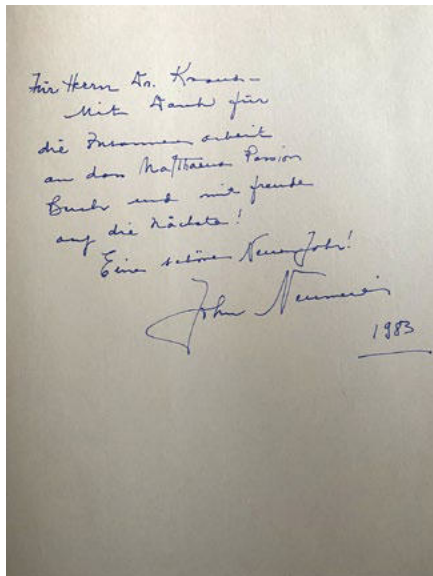 Für Herrn Dr. Kraus –
Mit Dank für
die Zusammenarbeit
an dem Matthaeus Passion
Buch und mit freude
auf die Nächste!
Eine schöne Neues Jahr!
John Neumeier
1983